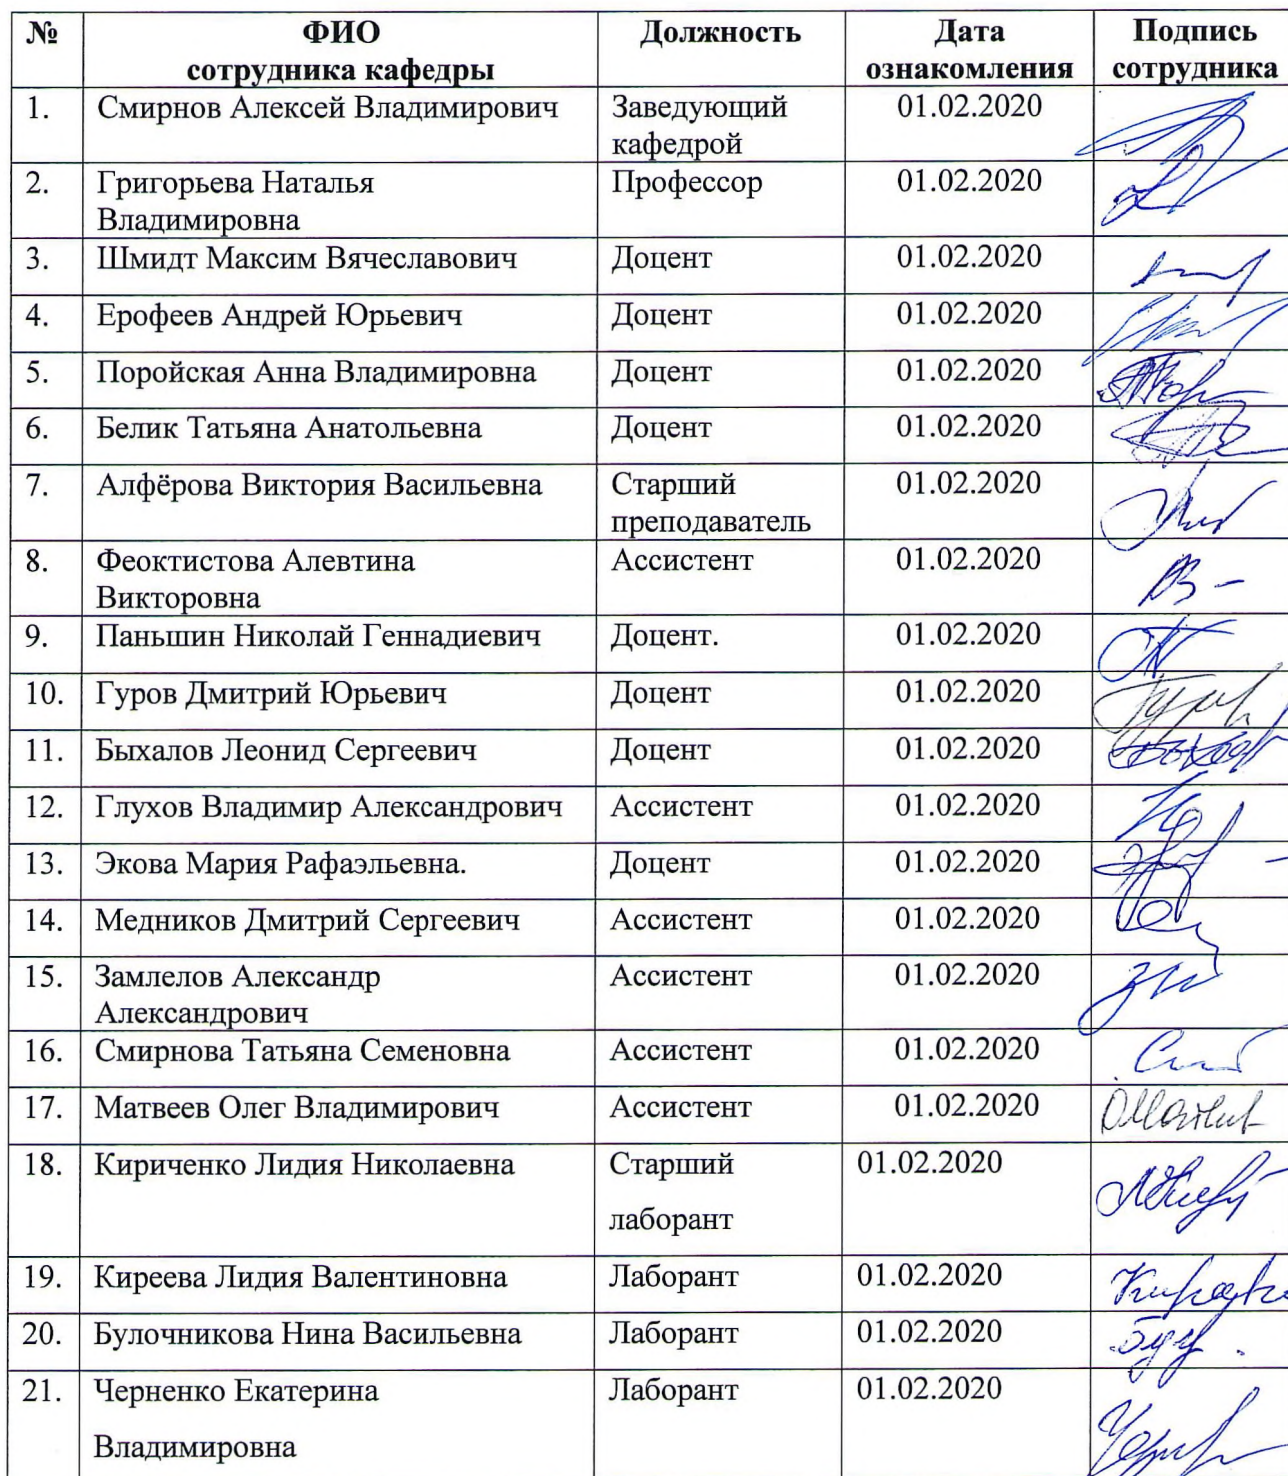 № ФИО Должность Дата Подпись
сотрудника кафедры ознакомления сотрудника
1. Смирнов Алексей Владимирович Заведующий 01.02.2020
кафедрой
2. Григорьева Наталья Профессор 01.02.2020
Владимировна
3. Шмидт Максим Вячеславович Доцент 01.02.2020
4. Ерофеев Андрей Юрьевич Доцент 01.02.2020
5. Поройская Анна Владимировна Доцент 01.02.2020
6. Белик Татьяна Анатольевна Доцент 01.02.2020
7. Алфёрова Виктория Васильевна Старший 01.02.2020
преподаватель
8. Феоктистова Алевтина Ассистент 01.02.2020
Викторовна
9. Паньшин Николай Геннадиевич Доцент. 01.02.2020
10. Гуров Дмитрий Юрьевич Доцент 01.02.2020
11. Быхалов Леонид Сергеевич Доцент 01.02.2020
12. Глухов Владимир Александрович Ассистент 01.02.2020
13. Экова Мария Рафаэльевна. Доцент 01.02.2020
14. Медников Дмитрий Сергеевич Ассистент 01.02.2020
15. Замлелов Александр Ассистент 01.02.2020
Александрович
16. Смирнова Татьяна Семеновна Ассистент 01.02.2020
17. Матвеев Олег Владимирович Ассистент 01.02.2020
18. Кириченко Лидия Николаевна Старший 01.02.2020
лаборант
19. Киреева Лидия Валентиновна Лаборант 01.02.2020
20. Булочникова Нина Васильевна Лаборант 01.02.2020
21. Черненко Екатерина Лаборант 01.02.2020
Владимировна